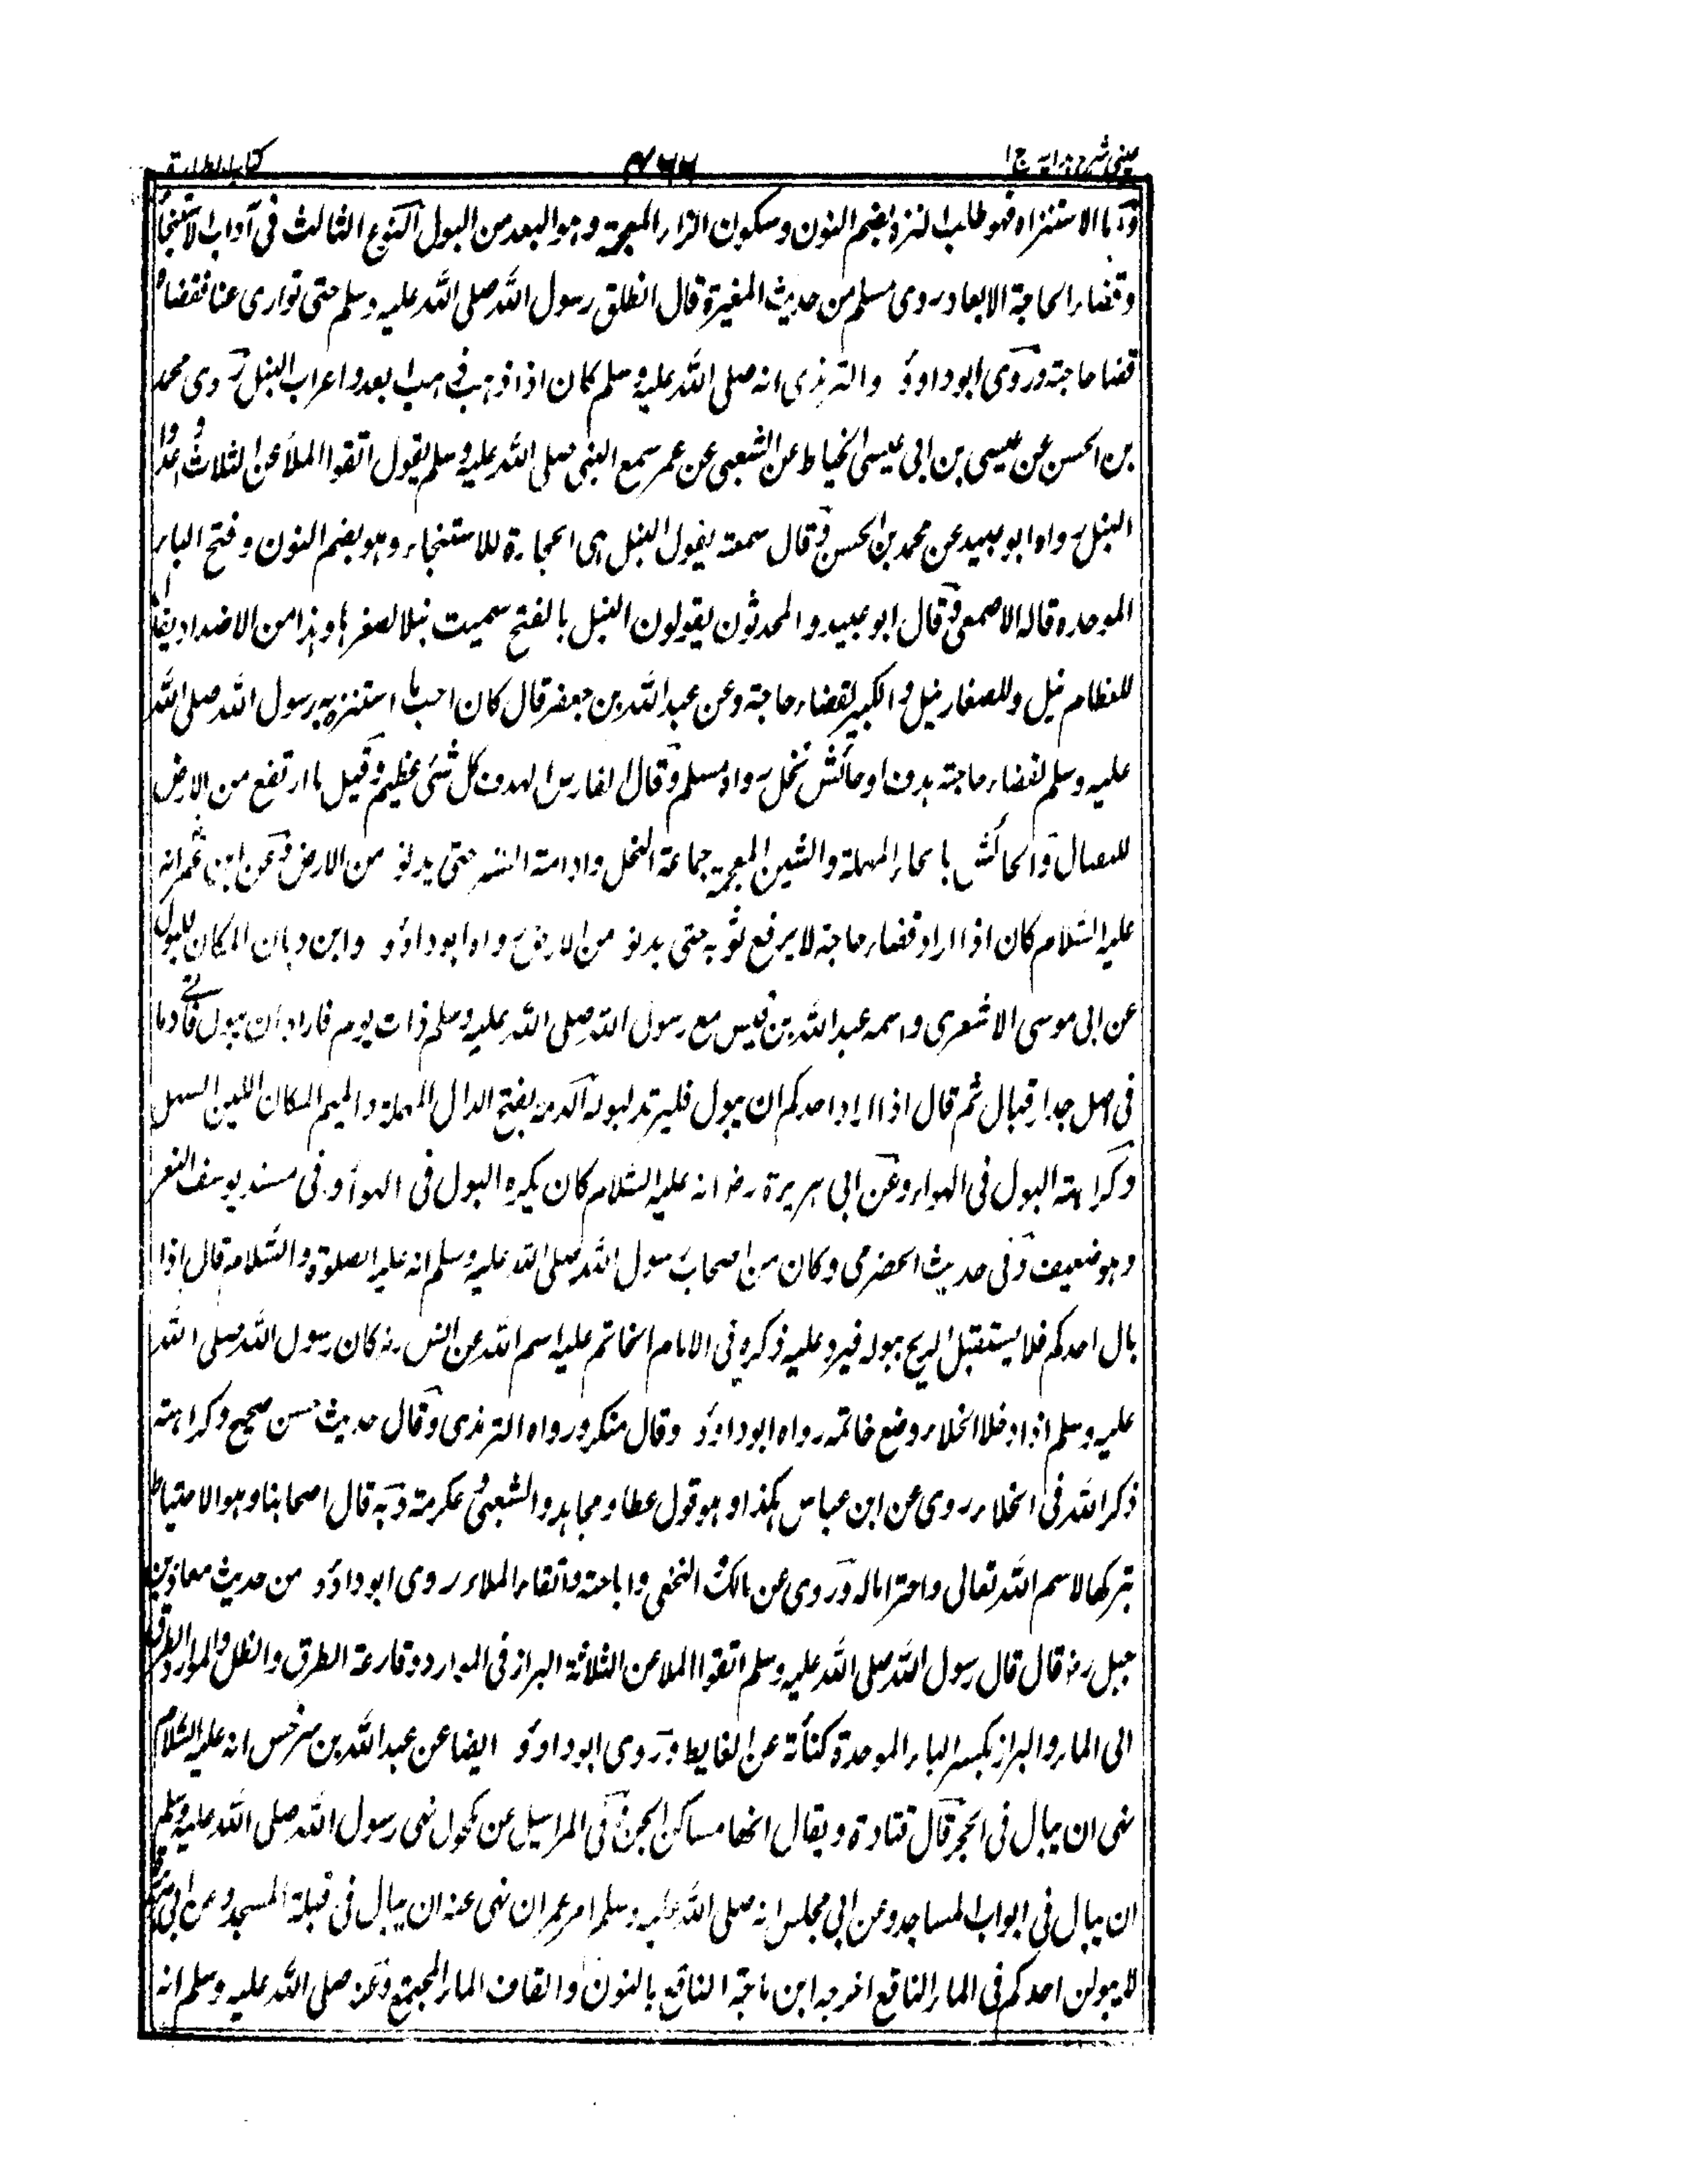 عینی شرح ہدایہ ج ا ۴۶۶ کتاب الطہارۃ
واما الاستنزاہ فہو طلب النزہ بضم النون وسکون الزاء المعجمۃ وہو البعد من البول النوع الثالث فی آداب الاستنجاء
وقضاء الحاجۃ الابعاد روی مسلم من حدیث المغیرۃ قال انطلق رسول اللہ صلی اللہ علیہ وسلم حتی تواری عنا فقضاء
قضا حاجتہ وروی ابو داود والترمذی انہ صلی اللہ علیہ وسلم کان اذا ذہب فی مذہب ابعد واعراب النبل روی محمد
بن الحسن عن عیسی بن ابی عیسی الخیاط عن الشعبی عن عمر سمع النبی صلی اللہ علیہ وسلم یقول اتقوا الملاعن الثلاث واعدوا
النبل رواہ ابو عبید عن محمد بن الحسن وقال سمعتہ یقول النبل ہی الحجارۃ للاستنجاء وہو بضم النون وفتح الباء
الموحدہ قالہ الاصمعی وقال ابو عبید والمحدثون یقولون النبل بالفتح سمیت نبلا لصغرہا وہذا من الاضداد یقال
للعظام نبل وللصغار نبل والکبیر لقضاء حاجتہ وعن عبد اللہ بن جعفر قال کان احب ما استنزہ بہ رسول اللہ صلی اللہ
علیہ وسلم لقضاء حاجتہ ہدف او حائش نخل رواہ مسلم وقال الفارس الہدف کل شئ عظیم وقیل ما ارتفع من الارض
للنصال والحائش بالحاء المہملۃ والشین المعجمۃ جماعۃ النخل وادامتہ الستر حتی یدنو من الارض وعن ابن عمر انہ
علیہ السلام کان اذا اراد قضاء حاجتہ لا یرفع ثوبہ حتی یدنو من الارض رواہ ابو داود المکان للبول
عن ابی موسی الاشعری واسمہ عبد اللہ بن قیس مع رسول اللہ صلی اللہ علیہ وسلم ذات یوم فاراد ان یبول فاتی دمثا
فی اصل جدار فبال ثم قال اذا اراد احدکم ان یبول فلیرتد لبولہ الدمث بفتح الدال المہملۃ والمیم المکان اللین السہل
وکراہتہ البول فی الہواء وعن ابی ہریرۃ رض انہ علیہ السلام کان یکرہ البول فی الہواء وفی مسند یوسف
وہو ضعیف وفی حدیث الحضرمی وکان من اصحاب رسول اللہ صلی اللہ علیہ وسلم انہ علیہ الصلوۃ والسلام قال اذا
بال احدکم فلا یستقبل الریح ببولہ فیرد علیہ ذکرہ فی الامام الخاتم علیہ اسم اللہ عن انس رض کان رسول اللہ صلی اللہ
علیہ وسلم اذا دخل الخلاء وضع خاتمہ رواہ ابو داود وقال منکر ورواہ الترمذی وقال حدیث حسن صحیح وکراہتہ
ذکر اللہ فی الخلاء روی عن ابن عباس ہکذا وہو قول عطا ومجاہد والشعبی وعکرمتہ وبہ قال اصحابنا وہو الاحتیاط
بترکھا لاسم اللہ تعالی واحتراما لہ وروی عن مالک النخعی واباحتہ واتقاء الملاء روی ابو داود من حدیث معاذ بن
جبل رض قال قال رسول اللہ صلی اللہ علیہ وسلم اتقوا الملاعن الثلاثۃ البراز فی الموارد وقارعۃ الطرق والظل والموارد الطرق
الی الماء والبراز بکسر الباء الموحدۃ کنایۃ عن الغایط وروی ابو داود ایضا عن عبد اللہ بن سرخس انہ علیہ السلام
نہی ان یبال فی الجحر قال قتادۃ ویقال انھا مساکن الجن وفی المراسیل عن مکحول نہی رسول اللہ صلی اللہ علیہ وسلم
ان یبال فی ابواب المساجد وعن ابی مجلس انہ صلی اللہ علیہ وسلم امر عمر ان نہی عنہ ان یبال فی قبلۃ المسجد وعن ابی
لا یبولن احدکم فی الماء الناقع اخرجہ ابن ماجۃ الناقع بالنون والقاف الماء المجتمع وعنہ صلی اللہ علیہ وسلم انہ